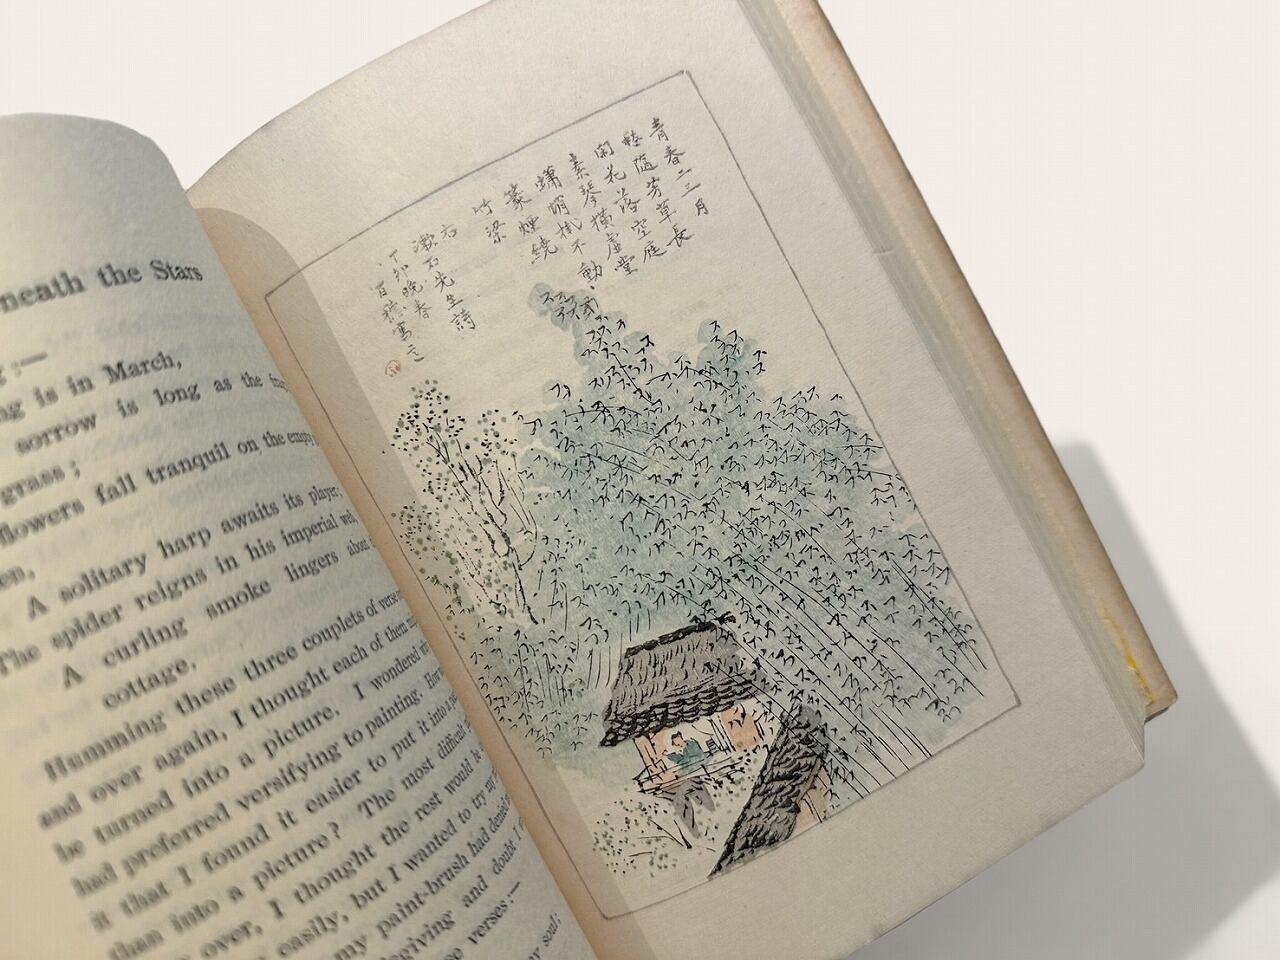 neath the Stars
:—
is in March,
sorrow is long as the
grass ;
flowers fall tranquil on the empty
A solitary harp awaits its player;
The spider reigns in his imperial web,
A curling smoke lingers about
cottage.
Humming these three couplets of verse
and over again, I thought each of them
be turned into a picture. I wondered
had preferred versifying to painting.
it that I found it easier to put it into a
than into a picture? The most difficult
over, I thought the rest would
easily, but I wanted to try my
my paint-brush had denied
giving and doubt I
verses:—
soul;
青春二三月
愁隨芳草長
閑花落空庭
素琴橫虛堂
蠨蛸掛不動
篆煙繞
竹梁
右
漱石先生詩
丁卯晚春
百穂寫之